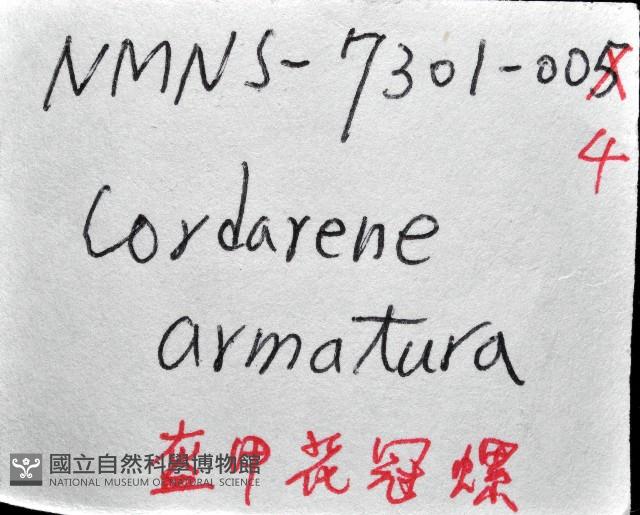 NMNS-7301-005
4
Cordarene
armatura
盔甲花冠螺
國立自然科學博物館
NATIONAL MUSEUM OF NATURAL SCIENCE